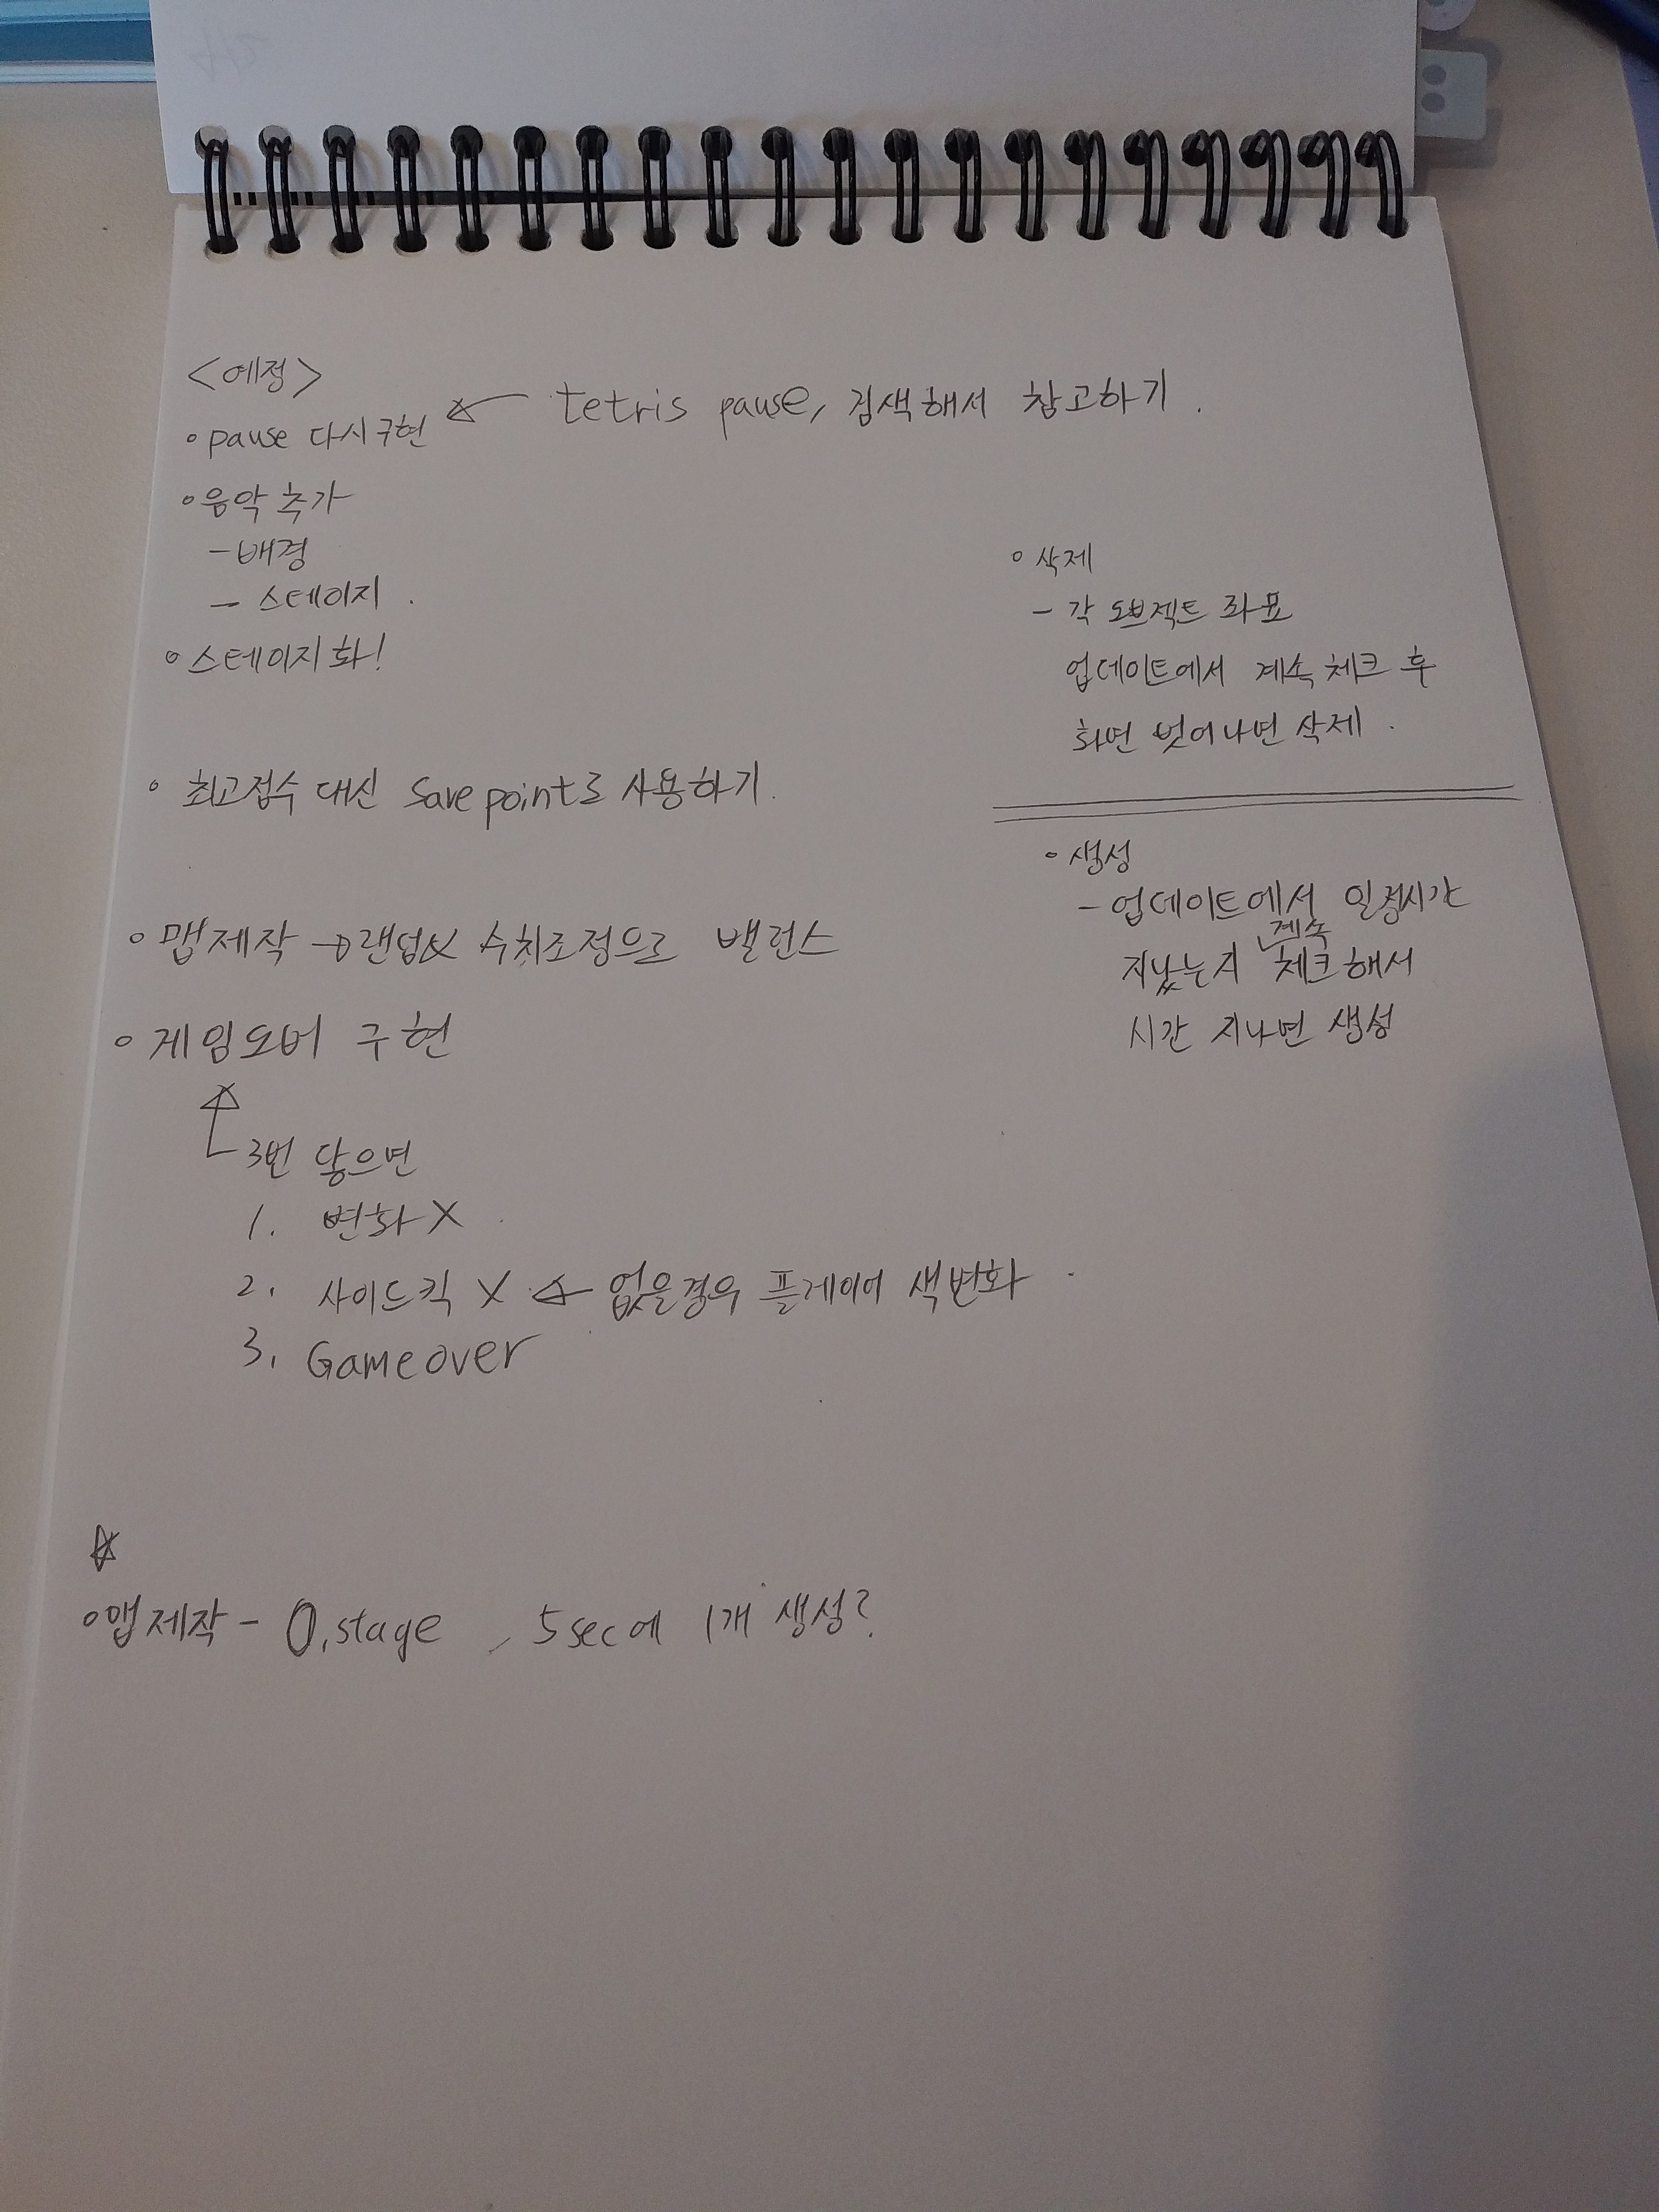 <예정>
∘ pause 다시 구현 ← tetris pause, 검색해서 참고하기.
∘ 음악 추가
- 배경
- 스테이지.
∘ 스테이지화!
∘ 최고점수 대신 Save point로 사용하기.
∘ 맵제작 → 랜덤& 수치조정으로 밸런스
∘ 게임오버 구현
↑ 3번 닿으면
1. 변화 X
2. 사이드킥 X ← 없을경우 플레이어 색변화.
3. Gameover
☆
∘ 맵 제작 - 0.stage , 5sec에 1개 생성?
∘ 삭제
- 각 오브젝트 좌표
업데이트에서 계속 체크 후
화면 벗어나면 삭제.
∘ 생성
- 업데이트에서 일정시간
지났는지 계속 체크해서
시간 지나면 생성